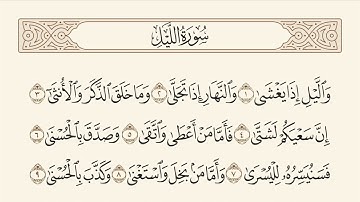 سُورَةُ اللَّيْلِ
وَاللَّيْلِ إِذَا يَغْشَىٰ ١ وَالنَّهَارِ إِذَا تَجَلَّىٰ ٢ وَمَا خَلَقَ الذَّكَرَ وَالْأُنثَىٰ ٣
إِنَّ سَعْيَكُمْ لَشَتَّىٰ ٤ فَأَمَّا مَنْ أَعْطَىٰ وَاتَّقَىٰ ٥ وَصَدَّقَ بِالْحُسْنَىٰ ٦
فَسَنُيَسِّرُهُ لِلْيُسْرَىٰ ٧ وَأَمَّا مَنْ بَخِلَ وَاسْتَغْنَىٰ ٨ وَكَذَّبَ بِالْحُسْنَىٰ ٩